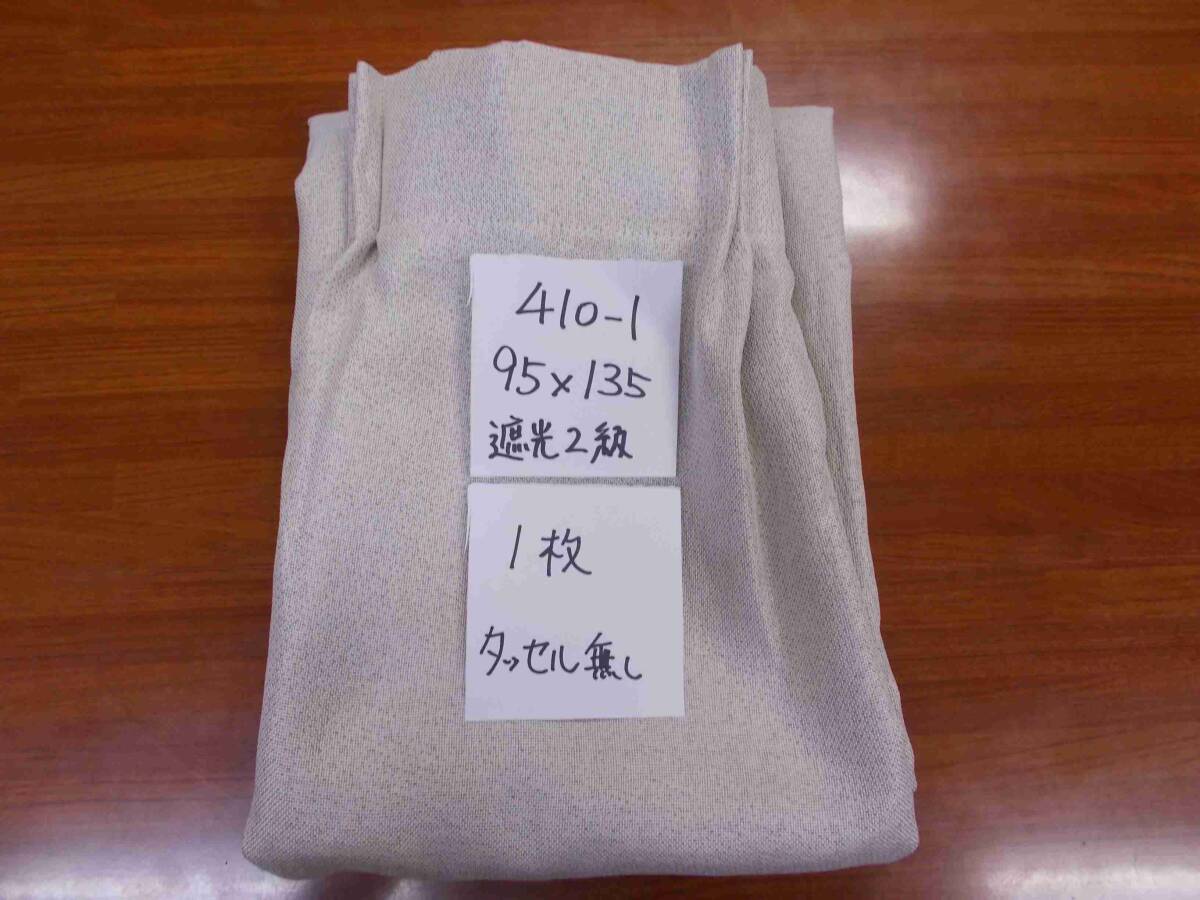 410-1
95×135
遮光2級
1枚
タッセル無し